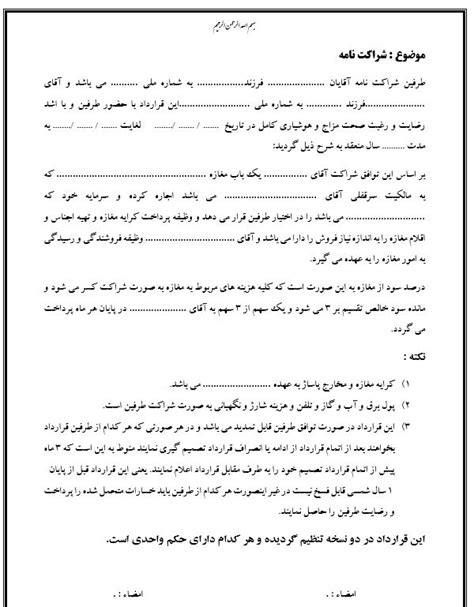 بسم الله الرحمن الرحیم
موضوع : شراکت نامه
طرفین شراکت نامه آقایان ..................... فرزند.................. به شماره ملی .......... می باشد و آقای
......................فرزند ............. به شماره ملی ........................این قرارداد با حضور طرفین و با اشد
رضایت و رغبت صحت مزاج و هوشیاری کامل در تاریخ ...... / ...... /...... لغایت ...... / ...... /...... به
مدت ......... سال منعقد به شرح ذیل گردید:
بر اساس این توافق شراکت آقای ................ یک باب مغازه ............................... که
به مالکیت سرقفلی آقای ........................... می باشد اجاره کرده و سرمایه خود که
............................. می باشد را در اختیار طرفین قرار می دهد و وظیفه پرداخت کرایه مغازه و تهیه اجناس و
اقلام مغازه را به اندازه نیاز فروش را دارا می باشد و آقای ............................... وظیفه فروشندگی و رسیدگی
به امور مغازه را به عهده می گیرد.
درصد سود از مغازه به این صورت است که کلیه هزینه های مربوط به مغازه به صورت شراکت کسر می شود و
مانده سود خالص تقسیم بر ۳ می شود و یک سهم از ۳ سهم به آقای ................... در پایان هر ماه پرداخت
می گردد.
نکته :
۱) کرایه مغازه و مخارج پاساژ به عهده ......................... می باشد.
۲) پول برق و آب و گاز و تلفن و هزینه شارژ و نگهبانی به صورت شراکت طرفین است.
۳) این قرارداد در صورت توافق طرفین قابل تمدید می باشد و در هر صورتی که هر کدام از طرفین قرارداد
بخواهند بعد از اتمام قرارداد از ادامه یا انصراف قرارداد تصمیم گیری نمایند منوط به این است که ۳ ماه
پیش از اتمام قرارداد تصمیم خود را به طرف مقابل قرارداد اعلام نمایند. یعنی این قرارداد قبل از پایان
۱ سال شمسی قابل فسخ نیست در غیر اینصورت هر کدام از طرفین باید خسارات متحمل شده را پرداخت
و رضایت طرفین را حاصل نمایند.
این قرارداد در دو نسخه تنظیم گردیده و هر کدام دارای حکم واحدی است.
امضاء : . امضاء : .